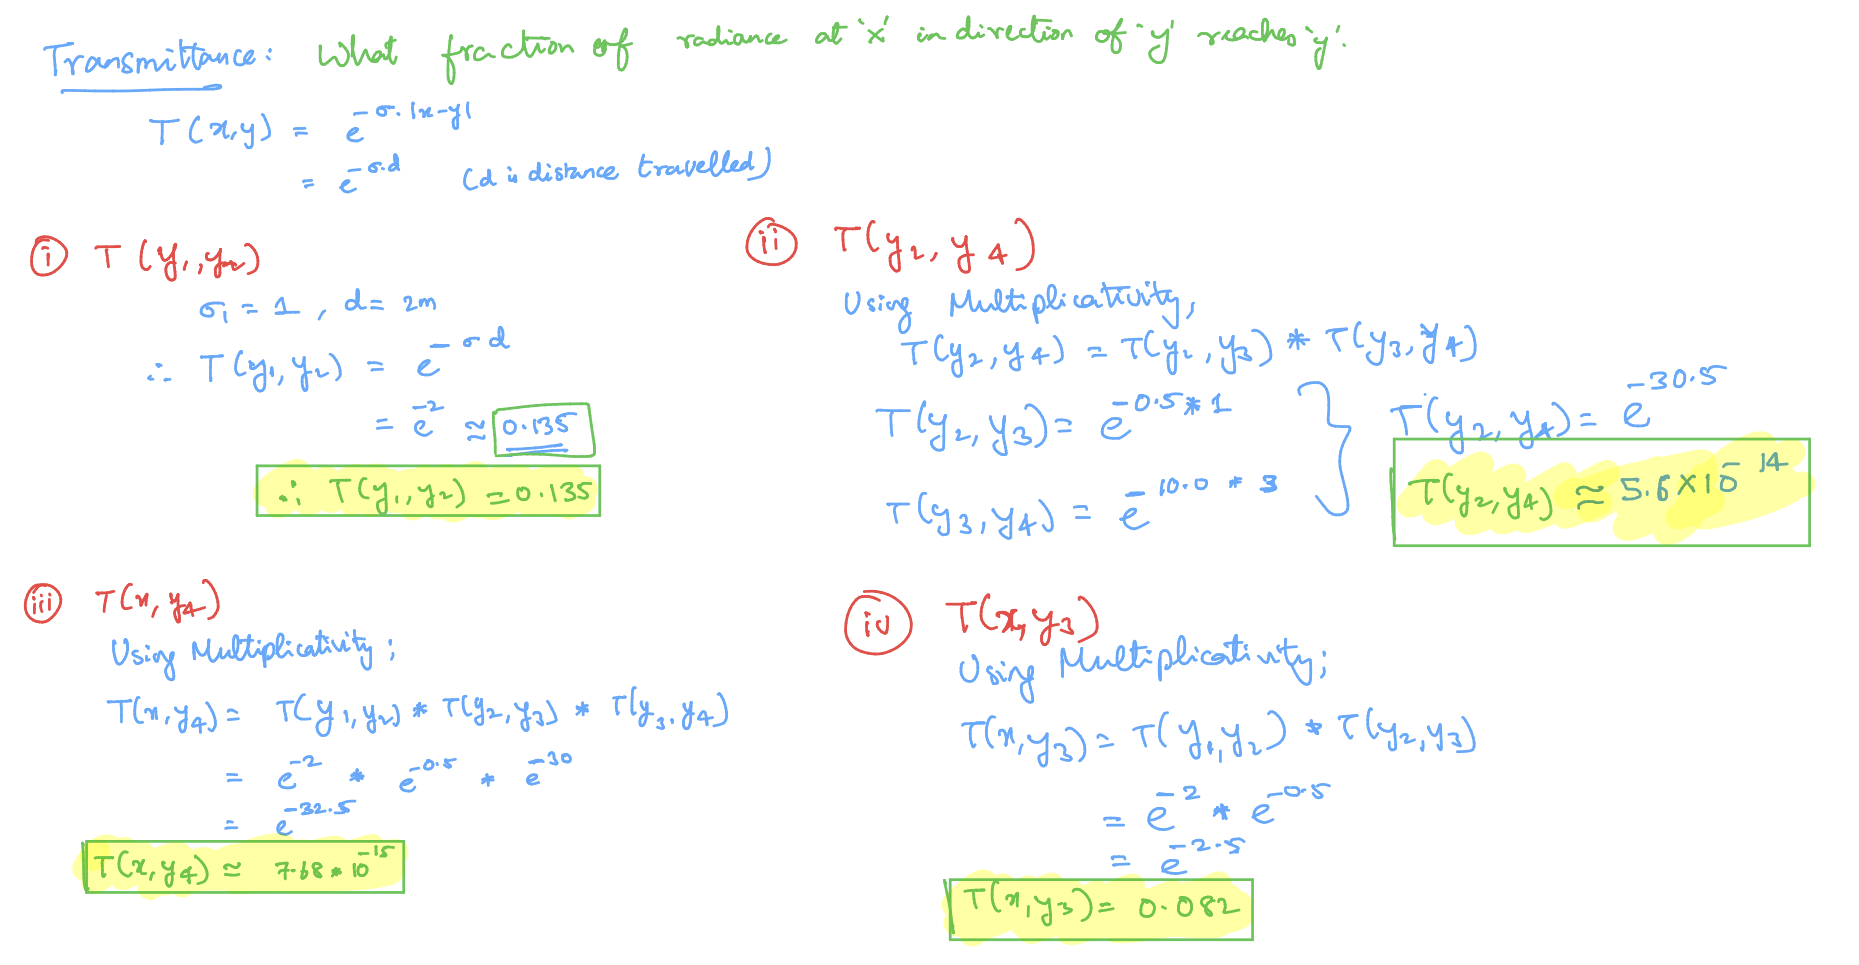 Transmittance: What fraction of radiance at 'x' in direction of 'y' reaches 'y'.
T(x,y) = e^{-σ.|x-y|}
= e^{-σ.d} (d is distance travelled)
(i) T(y₁,y₂)
σ₁ = 1 , d = 2m
∴ T(y₁,y₂) = e^{-σd}
= e^{-2} ≈ 0.135
∴ T(y₁,y₂) = 0.135
(ii) T(y₂,y₄)
Using Multiplicativity,
T(y₂,y₄) = T(y₂,y₃) * T(y₃,y₄)
T(y₂,y₃) = e^{-0.5*1}
T(y₃,y₄) = e^{-10.0*3}
T(y₂,y₄) = e^{-30.5}
T(y₂,y₄) ≈ 5.6×10^{-14}
(iii) T(x,y₄)
Using Multiplicativity;
T(x,y₄) = T(y₁,y₂) * T(y₂,y₃) * T(y₃,y₄)
= e^{-2} * e^{-0.5} * e^{-30}
= e^{-32.5}
T(x,y₄) ≈ 7.68*10^{-15}
(iv) T(x,y₃)
Using Multiplicativity;
T(x,y₃) = T(y₁,y₂) * T(y₂,y₃)
= e^{-2} * e^{-0.5}
= e^{-2.5}
T(x,y₃) = 0.082